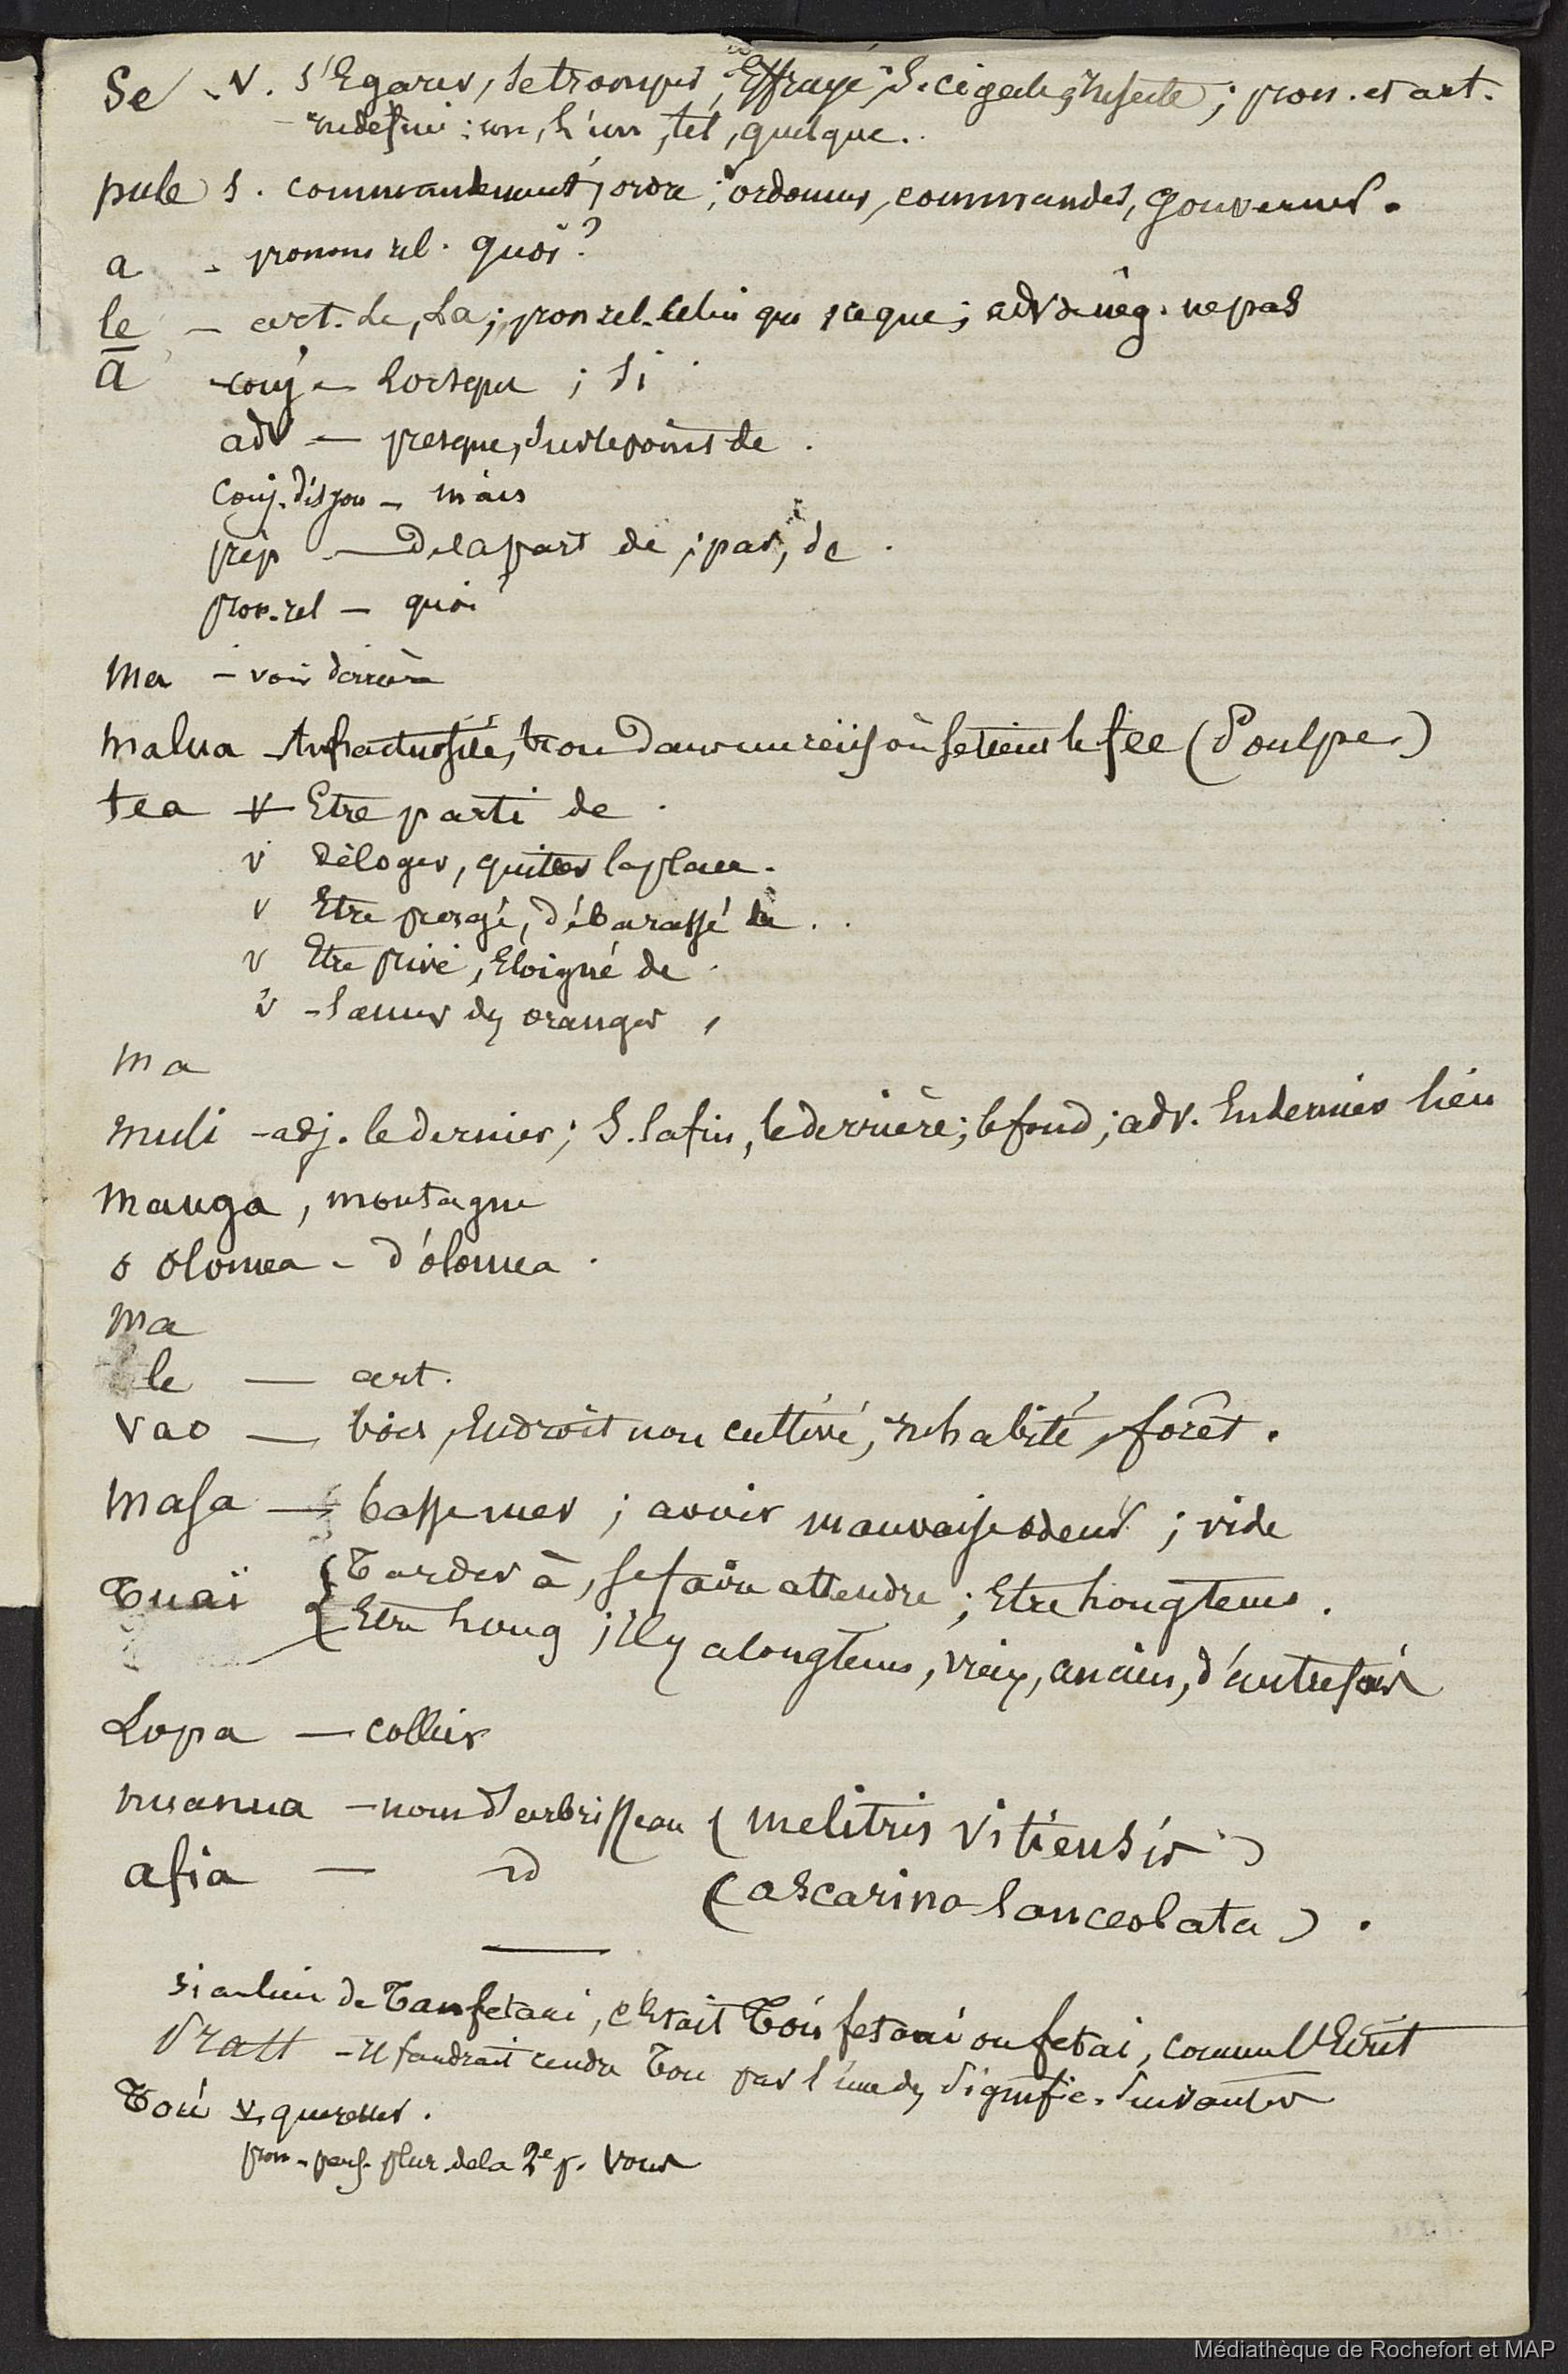 Se - v. s'Egarer, se tromper, Effrayé, S. cigale, Insecte ; pron. et art.
indefini : un, l'un, tel, quelque.
pule s. commandement, ordre ; ordonner, commander, gouverner.
a - pronom rel. quoi ?
le - art. Le, La ; pron rel. celui qui, ce que ; adv de nég. ne pas
ā conj - Lorsque ; si
adv - presque, sur le point de .
conj. disjon - mais
prép - de la part de ; par, de .
pron. rel - quoi ?
Ma - voir derrière
malua - Anfractuosité, trou dans un récif où se tient le fee (Poulpe)
tea v Etre parti de .
v déloger, quitter la place.
v Etre purgé, débarassé de . .
v Etre privé, Eloigné de .
v - semer des oranges ,
ma
muli - adj. le dernier ; S. la fin, le derrière ; le fond ; adv. En dernier lieu
Mauga, montagne
o olomea - d'olomea .
Ma
le - art.
vao - bois, Endroit non cultivé, inhabité, forêt .
masa - basse mer ; avoir mauvaise odeur ; vide
Tuaï { Tarder à, se faire attendre ; Etre longtems .
{ Etre long ; il y a longtems, vieux, ancien, d'autrefois
Lopa - collier
nuanua - nom d'arbrisseau ( melitris vitiensis )
afia - id ( ascarina lanceolata ) .
si au lieu de Tau fetaui, c'Etait Toú fetaui ou fetai, comme l'Ecrit
Pratt - il faudrait rendre Tou par l'une des signific. suivantes
Toú v. quereller .
pron - pers. plur de la 2e p. vous
Médiathèque de Rochefort et MAP